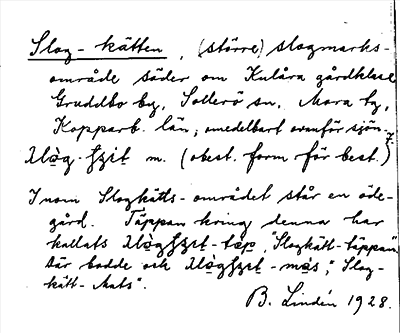 Slog-kätten, (större) slogmarks-
område söder om Kulåra gårdklase
Gruddbo by, Sollerö sn, Mora tg,
Kopparb. län, omedelbart ovanför sjön.
m. (obest. form för best.)
Inom Slogkätts-området står en öde-
gård. Täppan kring denna har
kallats "Slogkätt-täppan",
där bodde ock "Slog-
kätt-Mats".
B. Lindén 1928.